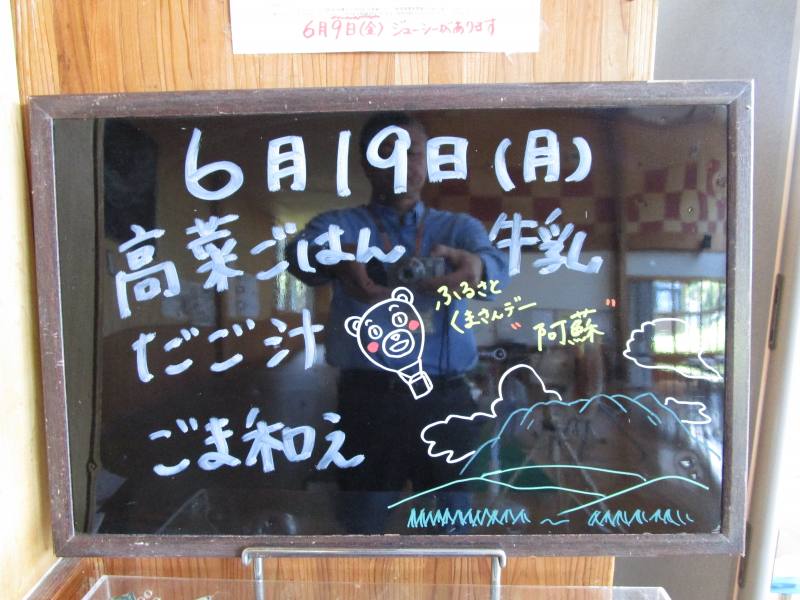 6月9日(金) ジューシーがあります
6月19日(月)
高菜ごはん 牛乳
だご汁
ごま和え
ふるさと
くまさんデー
"阿蘇"